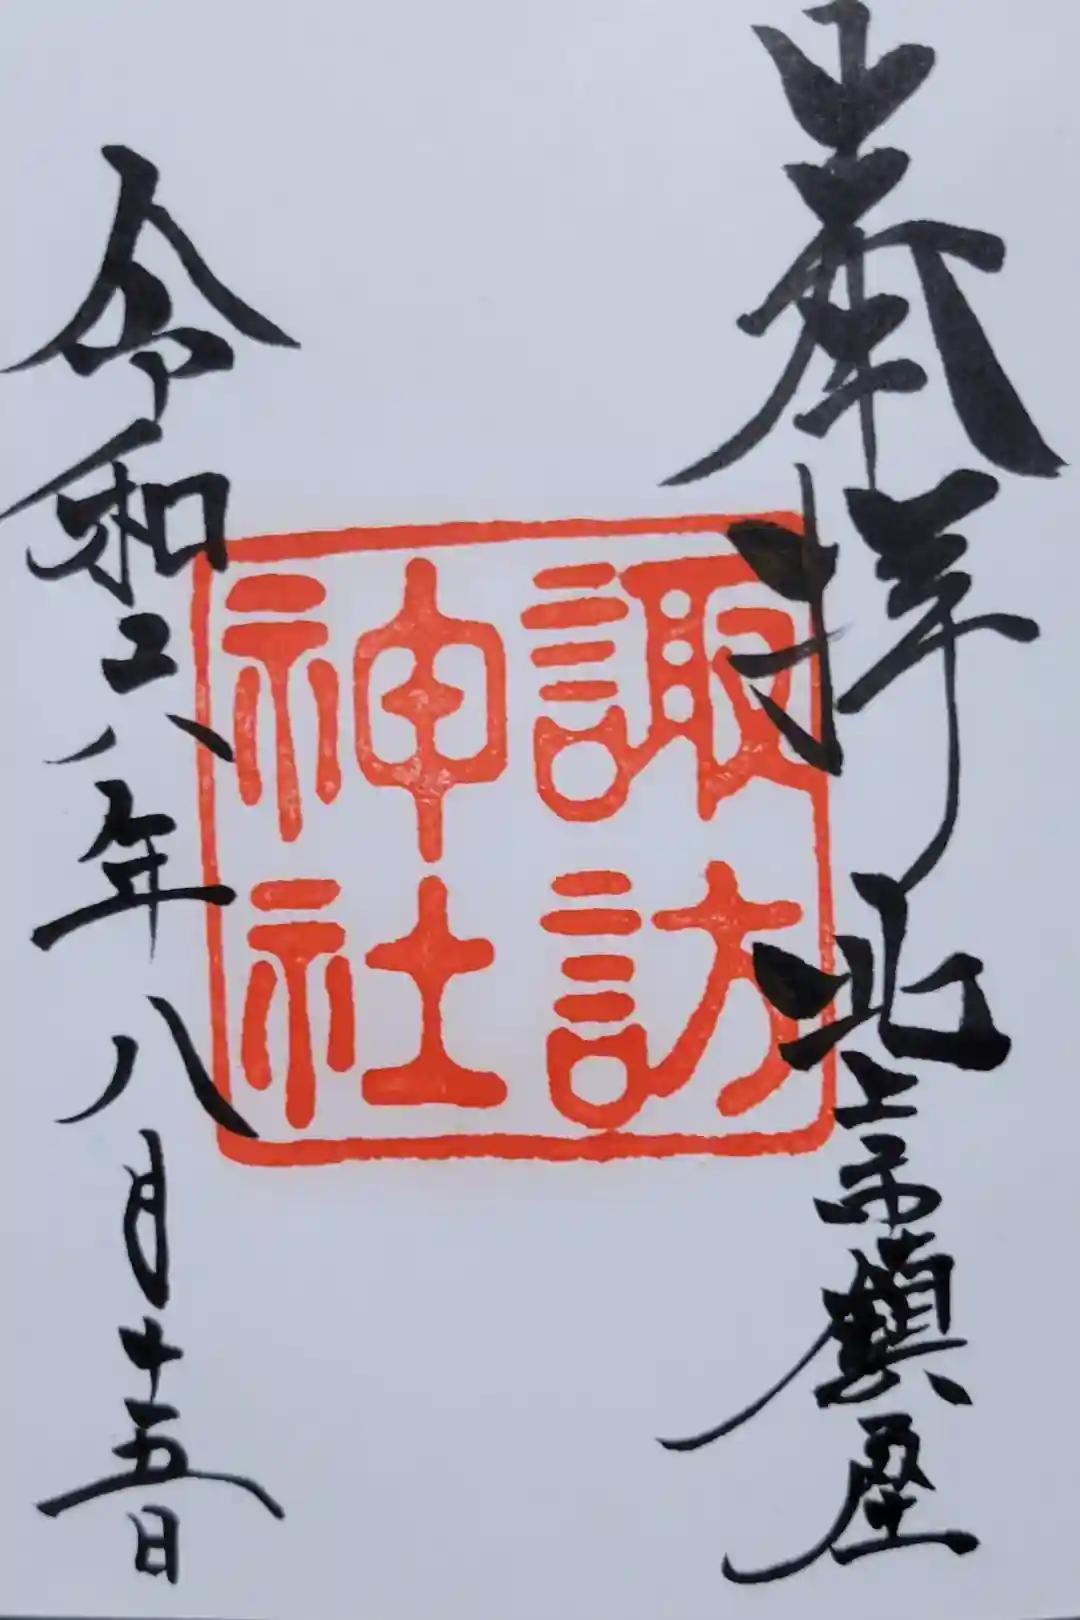 奉拝
北上市鎮座
諏訪
神社
令和六年八月十五日